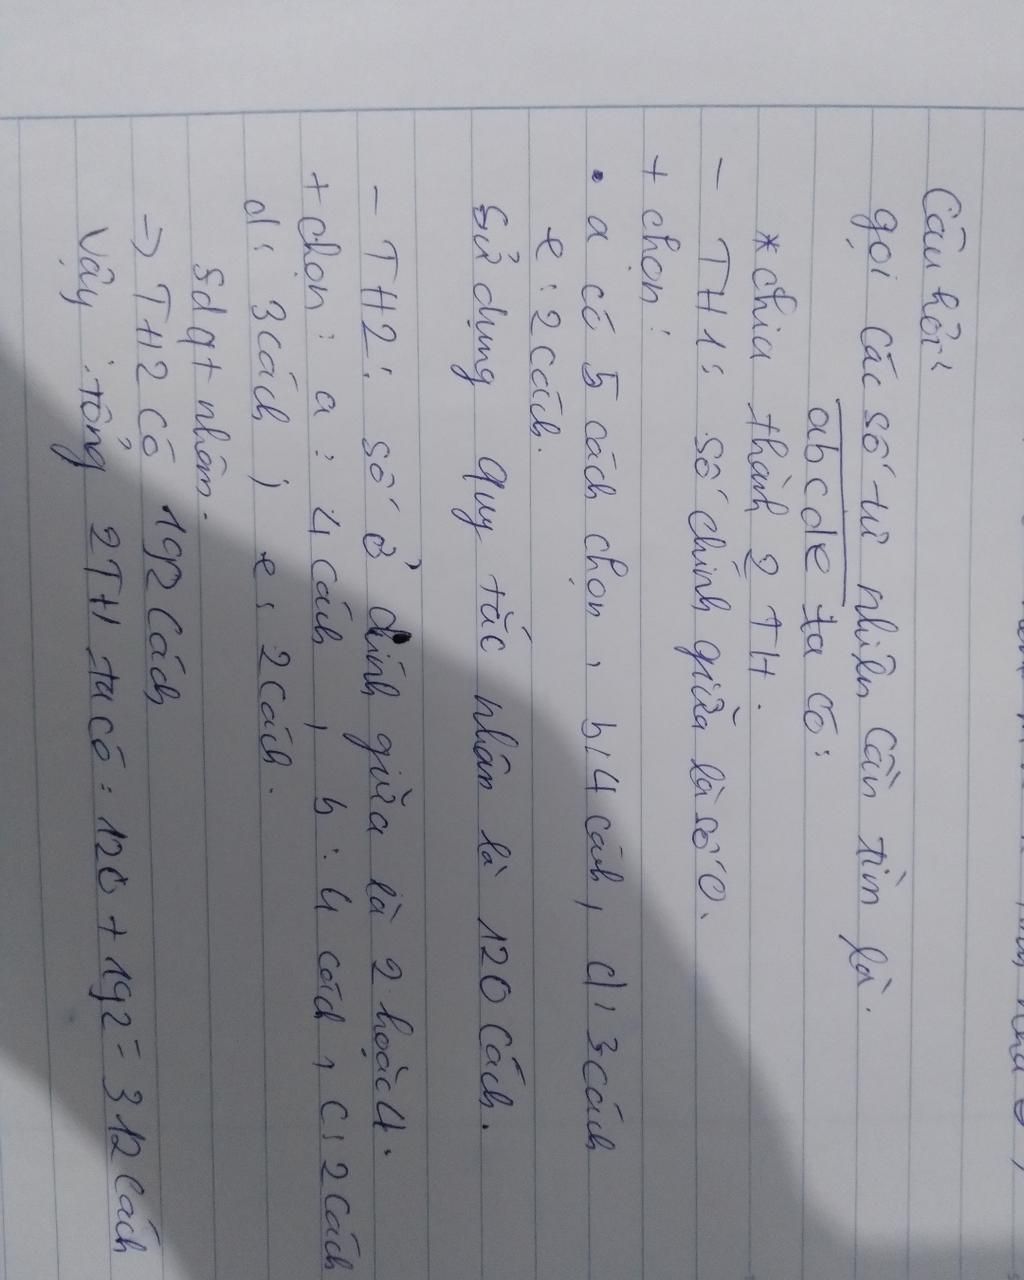 Câu hỏi:
gọi các số tự nhiên cần tìm là.
abcde ta có:
* chia thành 2 TH.
- TH1: số chính giữa là số 0.
+ chọn:
• a có 5 cách chọn, b: 4 cách, d: 3 cách
e: 2 cách.
sử dụng quy tắc nhân là 120 cách.
- TH2: số ở chính giữa là 2 hoặc 4.
+ chọn: a: 4 cách, b: 4 cách, c: 2 cách
d: 3 cách, e: 2 cách.
sdqt nhân.
=> TH2 có 192 cách
Vậy tổng 2TH ta có: 120 + 192 = 312 cách